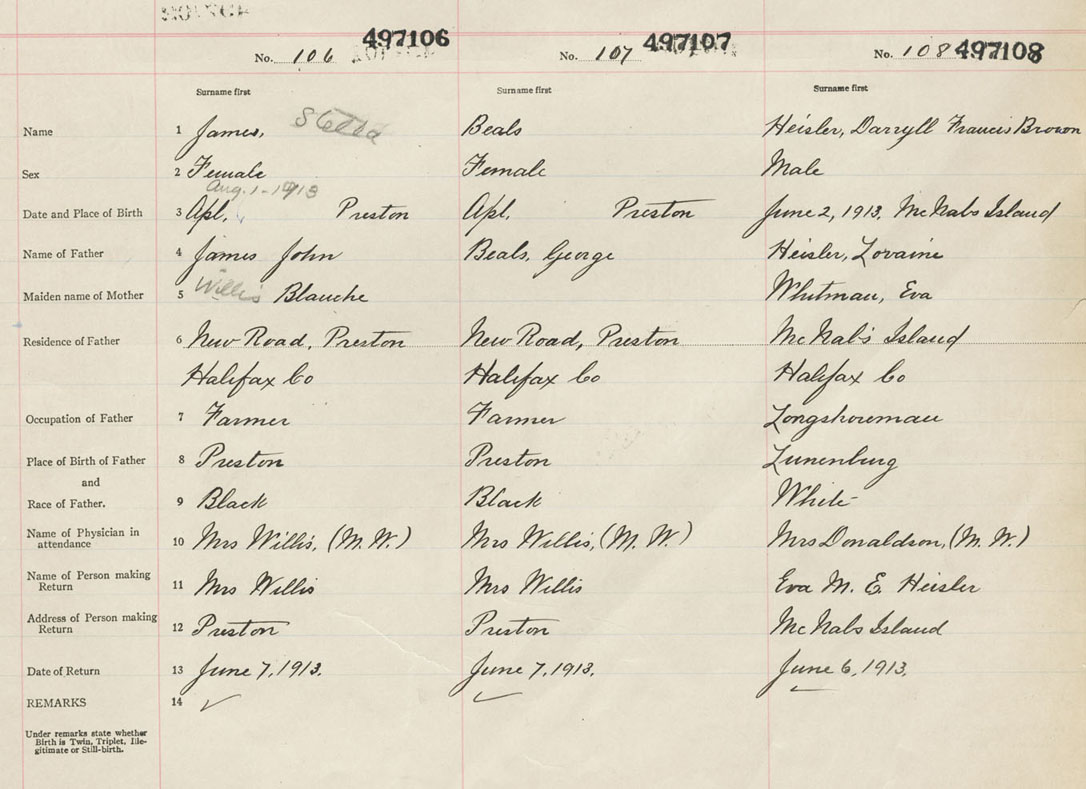 497106 497107 497108
No. 106 No. 107 No. 108
Surname first Surname first Surname first
Name 1 James, Stella Beals Heisler, Darryll Francis Brown
Sex 2 Female Female Male
Aug. 1 - 1913
Date and Place of Birth 3 Apl, Preston Apl, Preston June 2, 1913, McNabs Island
Name of Father 4 James John Beals, George Heisler, Loraine
Maiden name of Mother 5 Willis Blanche Whitman, Eva
Residence of Father 6 New Road, Preston New Road, Preston McNab's Island
Halifax Co Halifax Co Halifax Co
Occupation of Father 7 Farmer Farmer Longshoreman
Place of Birth of Father 8 Preston Preston Lunenburg
and
Race of Father. 9 Black Black White
Name of Physician in
attendance 10 Mrs Willis, (M.W.) Mrs Willis, (M.W.) Mrs Donaldson, (M.W.)
Name of Person making
Return 11 Mrs Willis Mrs Willis Eva M. E. Heisler
Address of Person making
Return 12 Preston Preston McNabs Island
Date of Return 13 June 7, 1913. June 7, 1913. June 6, 1913.
REMARKS 14
Under remarks state whether
Birth is Twin, Triplet, Ille-
gitimate or Still-birth.